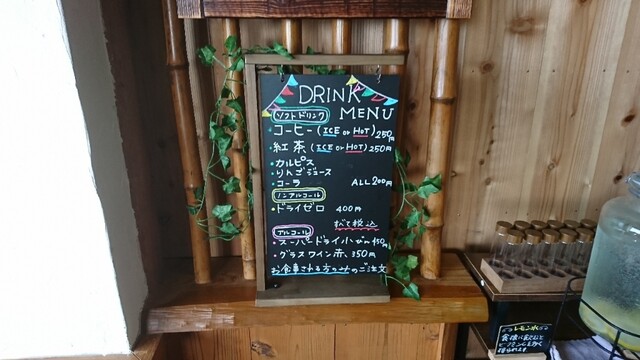 DRINK
MENU
ソフトドリンク
・コーヒー(ICE or HOT) 250円
・紅茶(ICE or HOT) 250円
・カルピス
・りんごジュース
・コーラ ALL 200円
ノンアルコール
・ドライゼロ 400円
すべて税込
アルコール
・スーパードライ小びん 450円
・グラスワイン赤 350円
お食事される方のみのご注文
レモン水
食後に飲むと